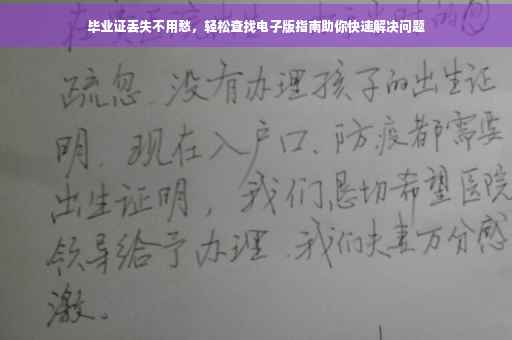 毕业证丢失不用愁，轻松查找电子版指南助你快速解决问题
疏忽、没有办理孩子的出生证
明、现在入户口、防疫都需要
出生证明，我们恳切希望医院
领导给予办理、我们夫妻万分感
激。